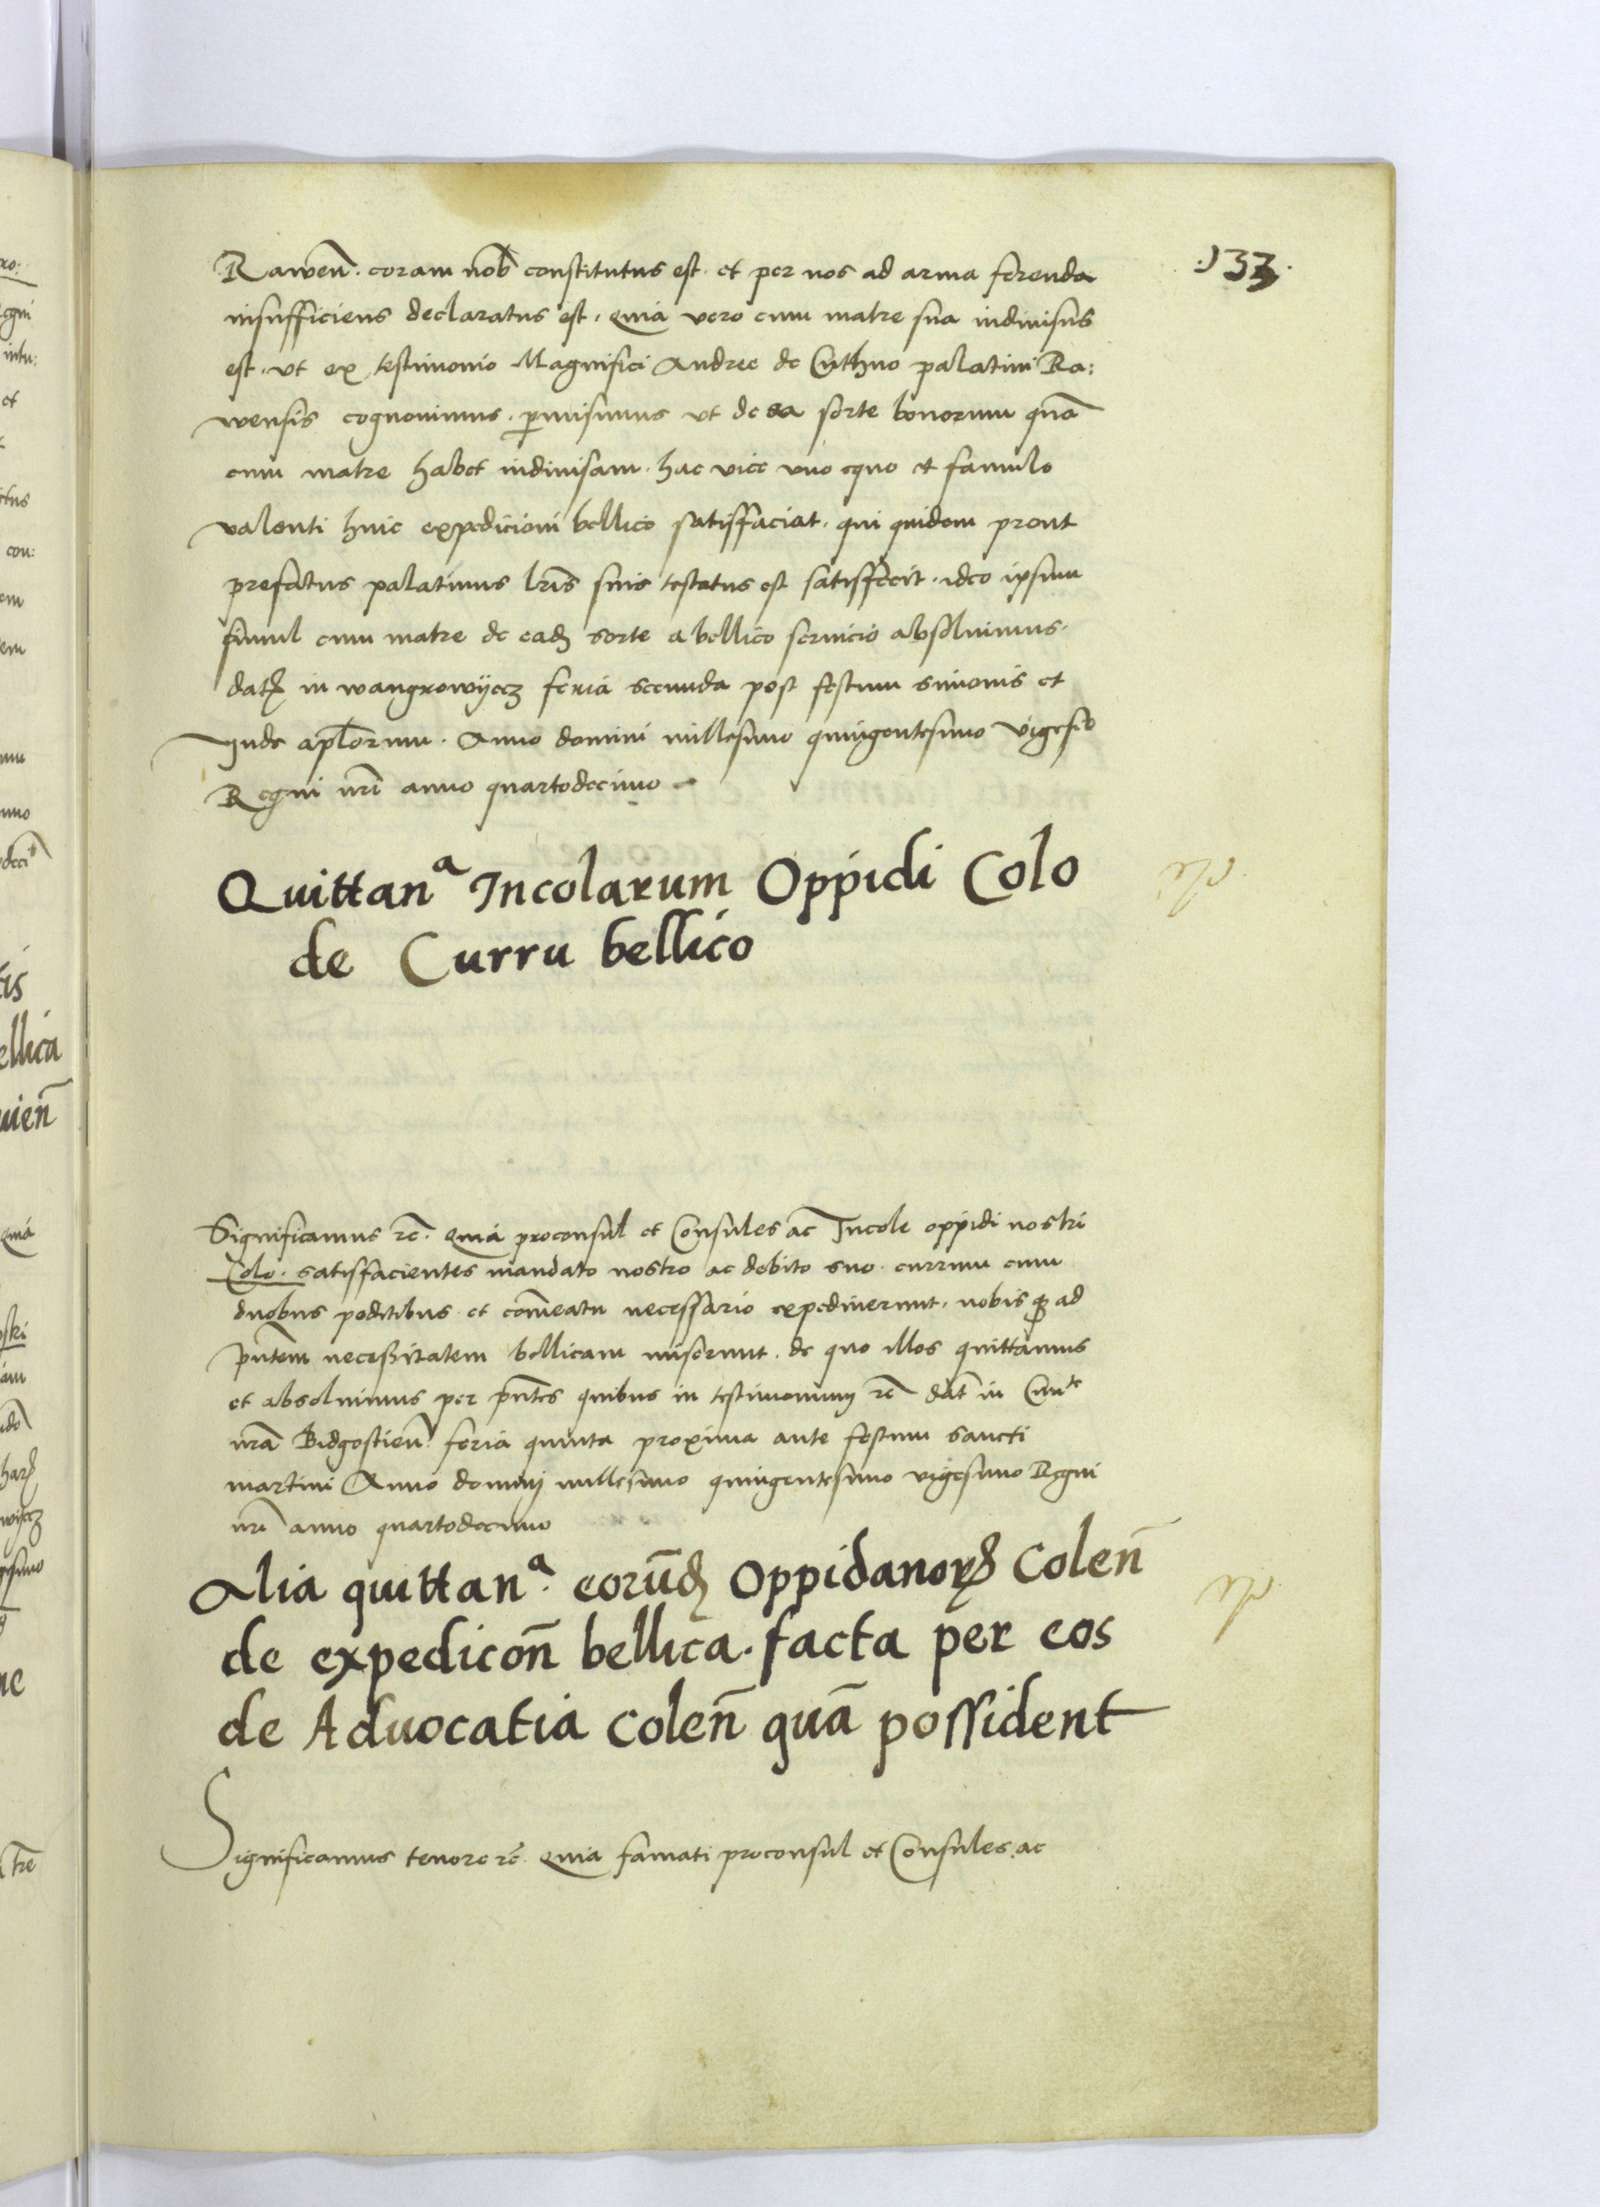 .133.
Rawen̄. coram nob̄ constitutus est. et per nos ad arma ferenda
insufficiens declaratus est. Quia vero cum matre sua indiuisus
est. vt ex testimonio Magnifici Andree de Cuthno palatini Ra:
wensis cognouimus. ꝑmisimus vt de ea sorte bonorum quā
cum matre habet indiuisam. hac vice vno equo et famulo
valenti huic expedicioni bellico satisfaciat. qui quidem prout
prefatus palatinus lr̄is suis testatus est satisfecit. ideo ipsum
simul cum matre de eadꝫ sorte a bellico seruicio absoluimus.
datꝫ in wangrowyecz feria secunda post festum simonis et
Jude apl̄orum. Anno domini millesimo quingentesimo vigesio
Regni nr̄i anno quartodecimo
Quittanᵃ Incolarum Oppidi Colo
de Curru bellico
Significamus rc̄. Quia proconsul et Consules ac̄ Incole oppidi nostri
Colo. satisfacientes mandato nostro ac debito suo. currum cum
duobus peditibus et com̄eatu necessario expediuerunt. nobis qꝫ ad
pn̄tem necessitatem bellicam miserunt. de quo illos quittamus
et absoluimus per pn̄tes quibus in testimonium rc̄ dat̄ in Ciuᵗᵉ
nr̄a Bidgostien̄. feria quinta proxima ante festum sancti
martini Anno dominj millesimo quingentesimo vigesimo Regni
nr̄i anno quartodecimo
Alia quittanᵃ. eorūdꝫ Oppidanoꝝ Colen̄
de expedicon̄ bellica. facta per eos
de Aduocatia Colen̄ quā possident
Significamus tenore rc̄. Quia famati proconsul et Consules ac